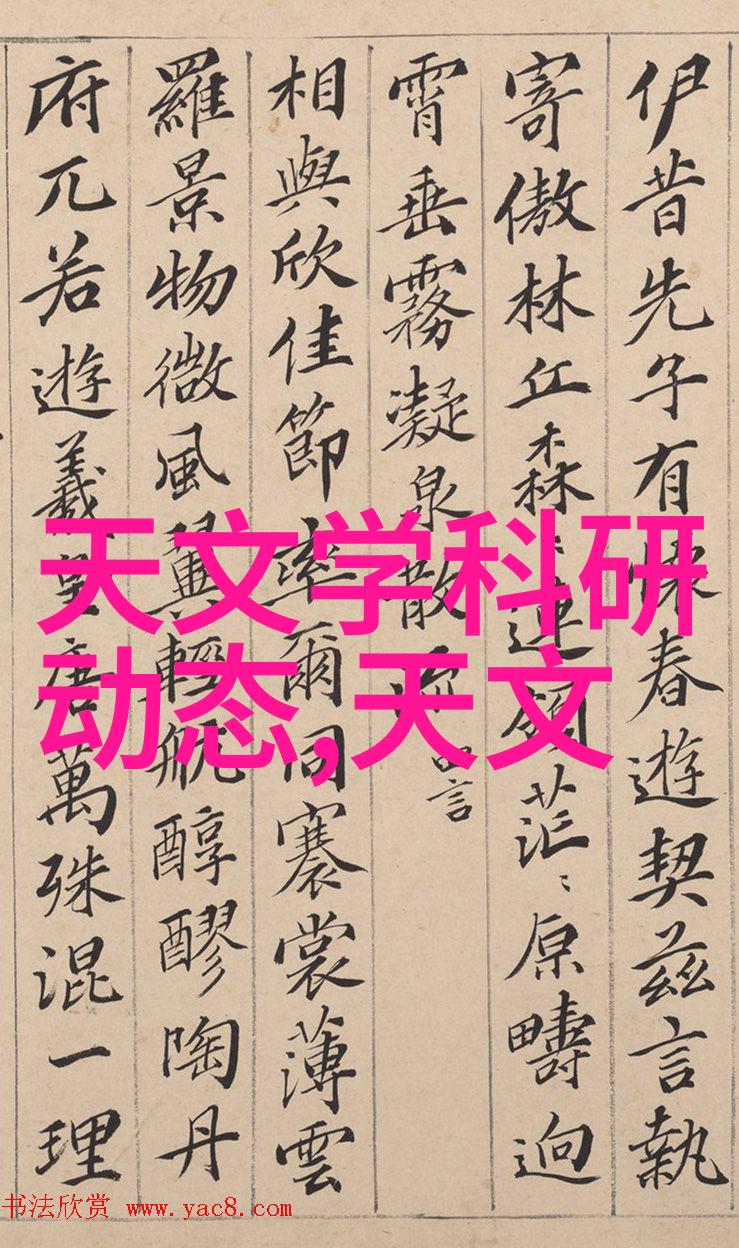 伊昔先子有懷春遊契茲言執
寄傲林丘森〻連嶺茫〻原疇逈
霄垂霧凝泉散流 四言
相與欣佳節率爾同褰裳薄雲
羅景物微風翼輕航醇醪陶丹
府兀若遊羲皇唐萬殊混一理
天文学科研
动态,天文
书法欣赏 www.yac8.com